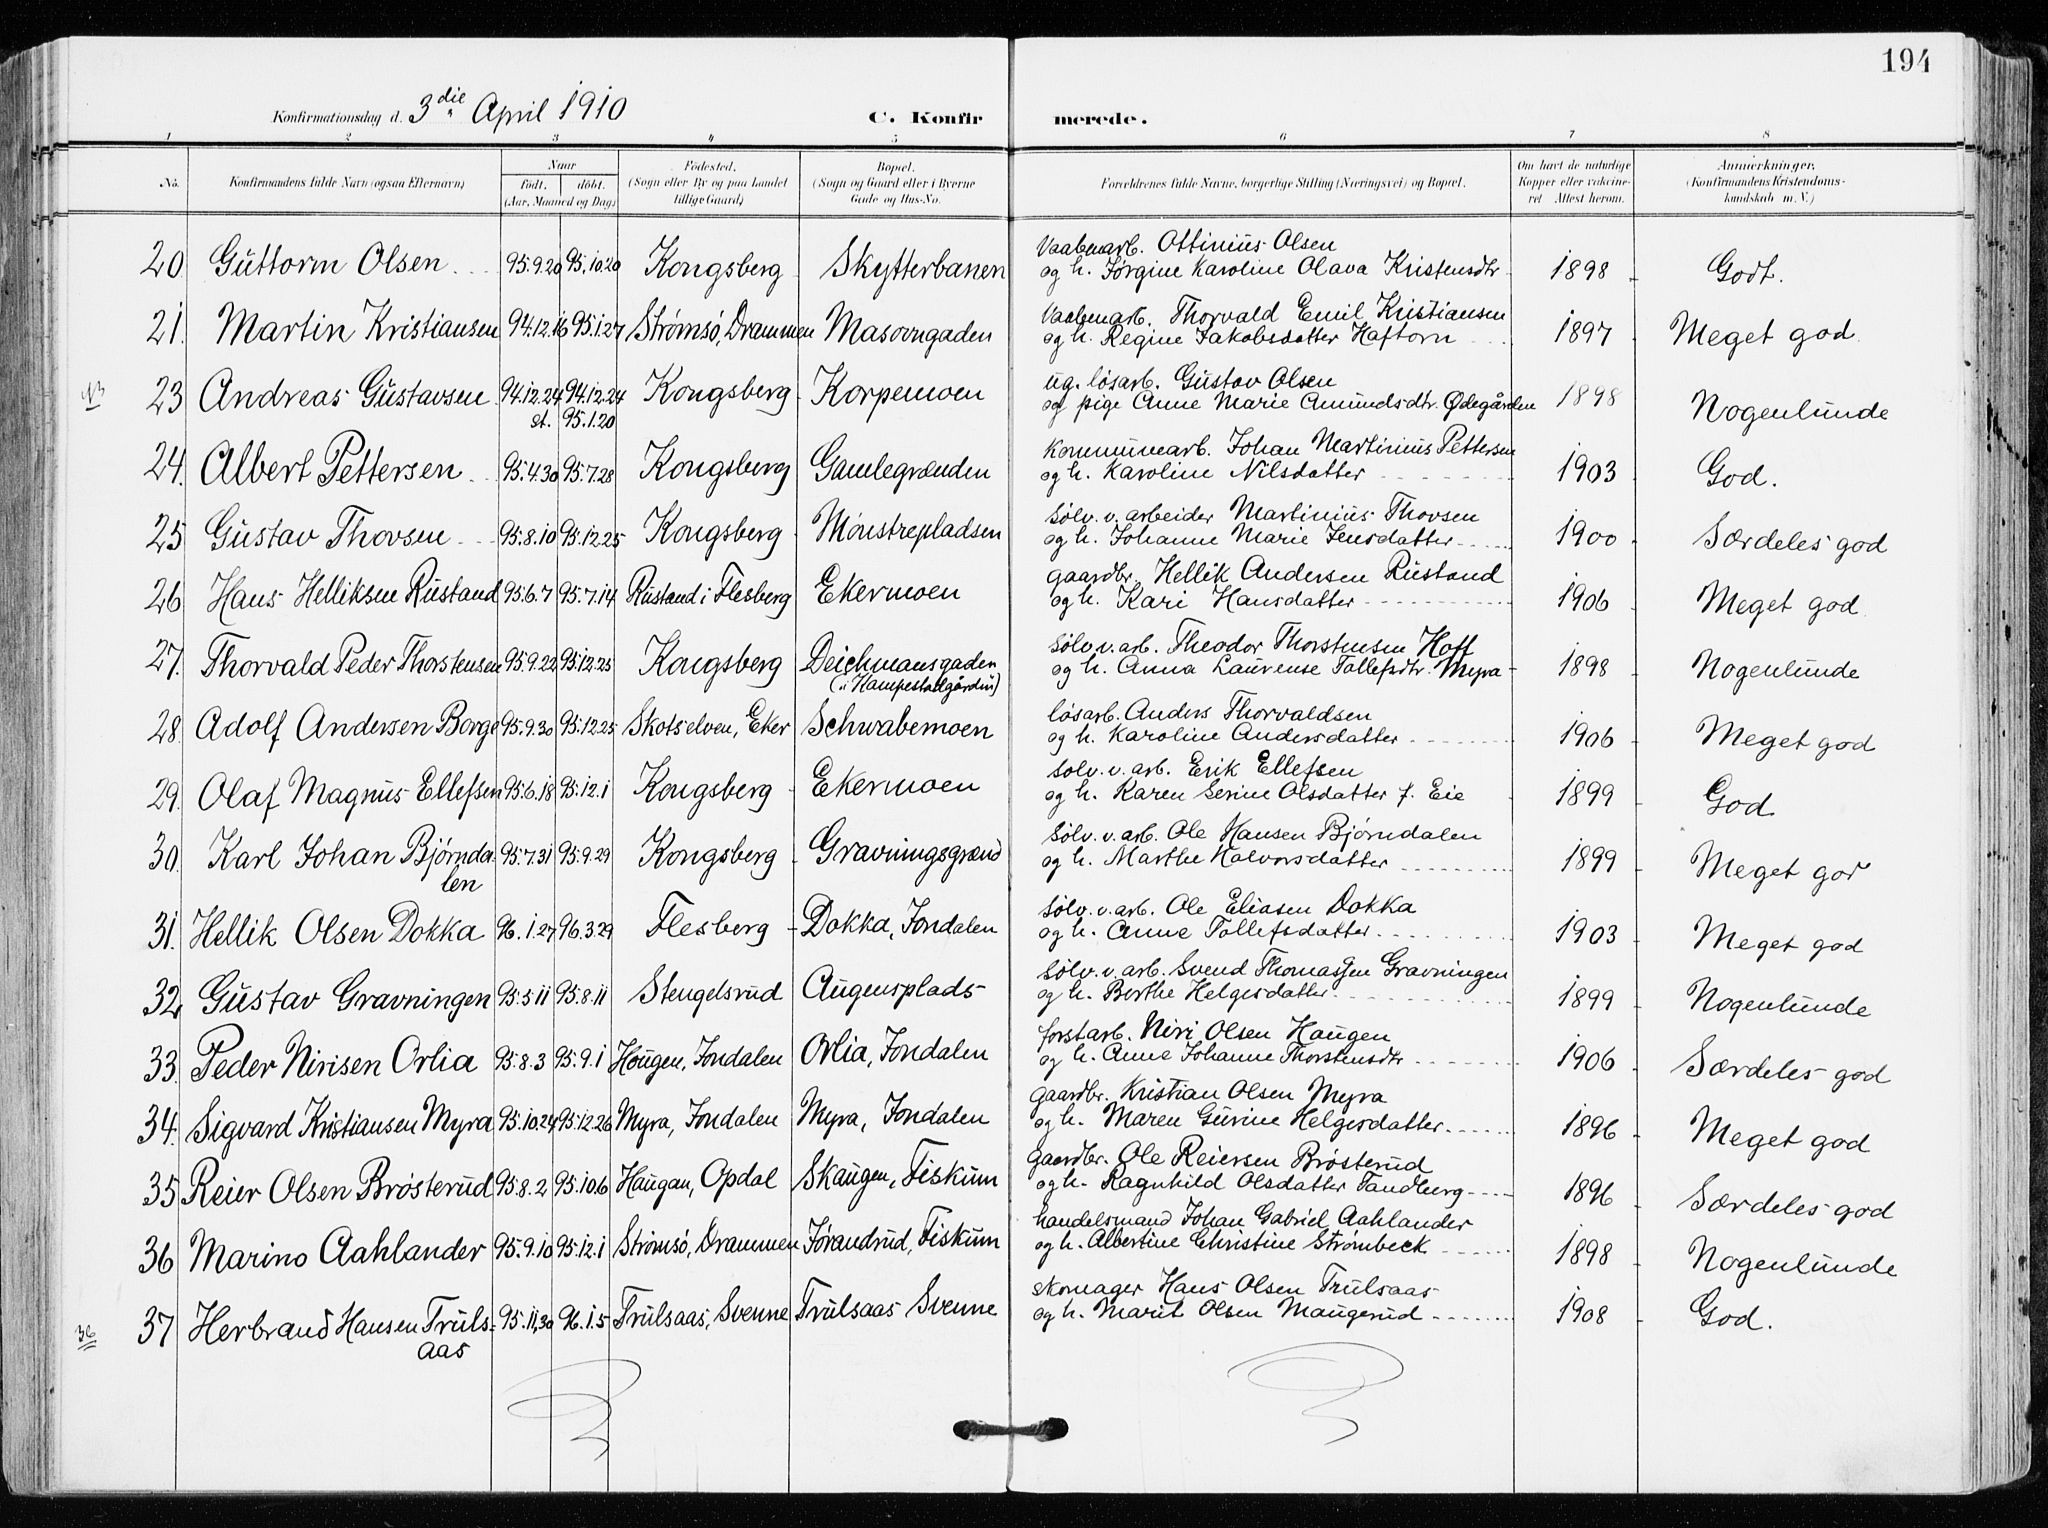 194
Konfirmationsdag d. 3die April 1910 C. Konfirmerede.
1 2 3 4 5 6 7 8
No. Konfirmandens fulde Navn (ogsaa Efternavn) Naar født. døbt. (Aar, Maaned og Dag) Fødested. (Sogn eller By og paa Landet tillige Gaard) Bopæl. (Sogn og Gaard eller i Byerne Gade og Hus-No. Forældrenes fulde Navne, borgerlige Stilling (Næringsvei) og Bopæl. Om havt de naturlige Kopper eller vakcineret Attest herom. Anmærkninger, (Konfirmandens Kristendomskundskab m. V.)
20 Guttorm Olsen 95.9.20 95.10.20 Kongsberg Skytterbanen Vaabenarb. Ottinius Olsen
og h. Jørgine Karoline Olava Kristensdtr 1898 Godt.
21. Martin Kristiansen 94.12.16 95.1.27 Strømsø, Drammen Masovngaden Vaabenarb. Thorvald Emil Kristiansen
og h. Regine Jakobsdatter Haftorn 1897 Meget god
23 Andreas Gustavsen 94.12.24 94.12.24 Kongsberg Korpemoen ug. løsarb. Gustav Olsen
st. 95.1.20 og pige Anne Marie Amundsdtr. Ødegården 1898 Nogenlunde
24. Albert Pettersen 95.4.30 95.7.28 Kongsberg Gamlegrænden Kommunearb. Johan Martinius Pettersen
og h. Karoline Nilsdatter 1903 God.
25 Gustav Thovsen 95.8.10 95.12.25 Kongsberg Mønstrepladsen sølv.v.arbeider Martinius Thovsen
og h. Johanne Marie Jensdatter 1900 Særdeles god
26 Hans Helliksen Rustand 95.6.7 95.7.14 Rustand i Flesberg Ekermoen gaardbr. Hellik Andersen Rustand
og h. Kari Hansdatter 1906 Meget god
27. Thorvald Peder Thorstensen 95.9.22 95.12.25 Kongsberg Deichmansgaden sølv.v.arb. Theodor Thorstensen Hoff
(i Hampestadgården) og h. Anna Laurense Tollefsdtr. Myra 1898 Nogenlunde
28. Adolf Andersen Borge 95.9.30 95.12.25 Skotselven, Eker Schwabemoen løsarb. Anders Thorvaldsen
og h. Karoline Andersdatter 1906 Meget god
29. Olaf Magnus Ellefsen 95.6.18 95.12.1 Kongsberg Ekermoen sølv.v.arb. Erik Ellefsen
og h. Karen Serine Olsdatter f. Eie 1899 God
30. Karl Johan Bjørnda- 95.7.31 95.9.29 Kongsberg Gravningsgrænd sølv.v.arb. Ole Hansen Bjørndalen
len og h. Marthe Halvorsdatter 1899 Meget god
31. Hellik Olsen Dokka 96.1.27 96.3.29 Flesberg Dokka, Jondalen sølv.v.arb. Ole Eliasen Dokka
og h. Anne Tollefsdatter 1903 Meget god
32 Gustav Gravningen 95.5.11 95.8.11 Stengelsrud Augensplads sølv.v.arb. Svend Thomassen Gravningen
og h. Berthe Helgesdatter 1899 Nogenlunde
33. Peder Nirisen Orlia 95.8.3 95.9.1 Hougen, Jondalen Orlia, Jondalen forstarb. Niri Olsen Haugen
og h. Anne Johanne Thorstensdtr 1906 Særdeles god
34. Sigvard Kristiansen Myra 95.10.24 95.12.26 Myra, Jondalen Myra, Jondalen gaardbr. Kristian Olsen Myra
og h. Maren Gurine Helgesdatter 1896 Meget god
35 Reier Olsen Brøsterud 95.8.2 95.10.6 Haugan, Opdal Skaugen, Fiskum gaardbr. Ole Reiersen Brøsterud
og h. Ragnhild Olsdatter Tandberg 1896 Særdeles god
36 Marino Aahlander 95.9.10 95.12.1 Strømsø, Drammen Jørandrud, Fiskum handelsmand Johan Gabriel Aahlander
og h. Albertine Christine Strømbeck 1898 Nogenlunde
36 37 Herbrand Hansen Truls- 95.11.30 96.1.5 Trulsaas, Svenne Trulsaas Svenne skomager Hans Olsen Trulsaas
aas og h. Marit Olsen Maugerud 1908 God.